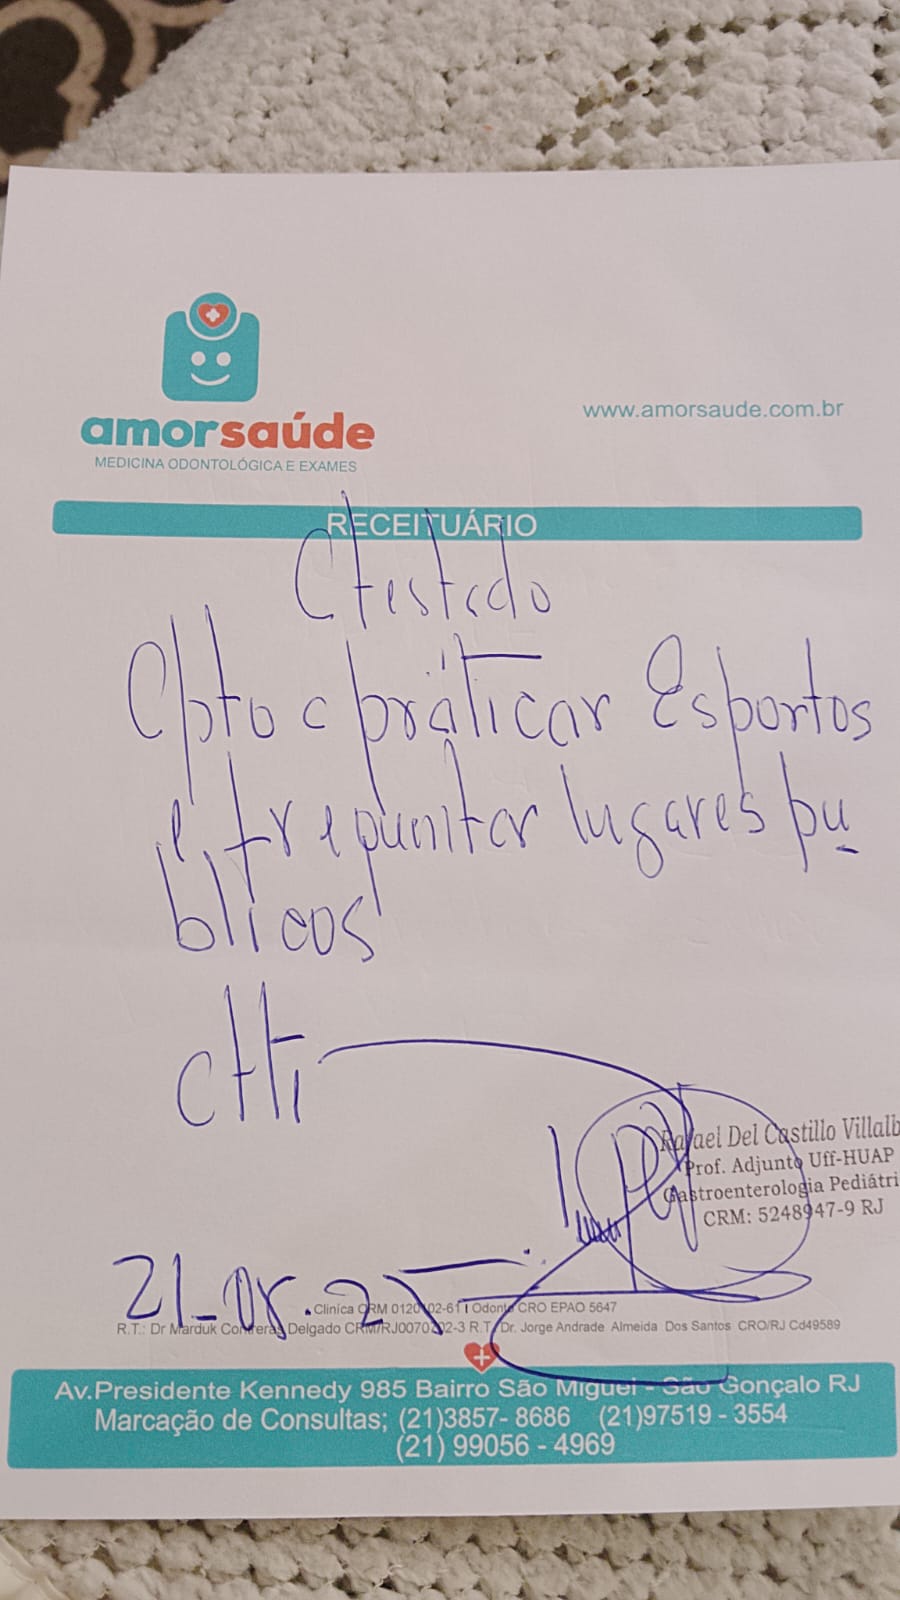 amorsaúde
MEDICINA ODONTOLÓGICA E EXAMES
www.amorsaude.com.br
RECEITUÁRIO
Atestado
Apto a práticar Esportos
e frequnitar lugares pu
blicos
Att
Rafael Del Castillo Villalb
Prof. Adjunto Uff-HUAP
Gastroenterologia Pediátri
CRM: 5248947-9 RJ
21-08.25
Cliníca CRM 0120102-61 I Odonto CRO EPAO 5647
R.T.: Dr Marduk Contreras Delgado CRM/RJ0070202-3 R.T. Dr. Jorge Andrade Almeida Dos Santos CRO/RJ Cd49589
Av.Presidente Kennedy 985 Bairro São Miguel - São Gonçalo RJ
Marcação de Consultas; (21)3857- 8686 (21)97519 - 3554
(21) 99056 - 4969